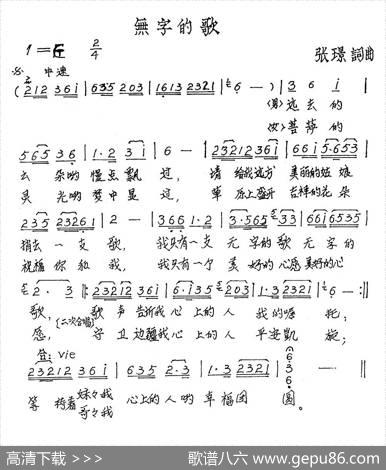 無字的歌
1=E 2/4 张璟 詞曲
中速
(212 36i | 635 203 | 1613 2321 | 6 — ) | 3 6 i |
(男)远去的
(女)菩莎的
565 36 | 1·2 3i | 6 — | 23212 36i | 66i 5·653 |
云朵哟 慢点飘过, 请给我远方 美丽的姑娘
灵光哟 梦中显过, 草原上盛开 吉祥的花朵
235 23261 | 2 — | 366 1·2 | 3·565 33 | 66i 6535 |
捎去一支歌, 我只有一支 无字的歌 无字的
祝福你和我, 我只有一个 美好的心愿 美好的心
2·3 |: 23212 36i | 6·i35 203 | 1·3 2321 | 6 — :|
歌, 歌声告诉我心上的人 我的嘱托;
愿, (二次合唱) 守卫边疆我心上的人 平安凯旋;
23212 36i | 635 2·3 | 1·3 2321 | 6 3 6 | — — ‖
等待着妹々我 心上的人哟 幸福团圆。
哥々我
高清下载 >>> 歌谱八六 www.gepu86.com